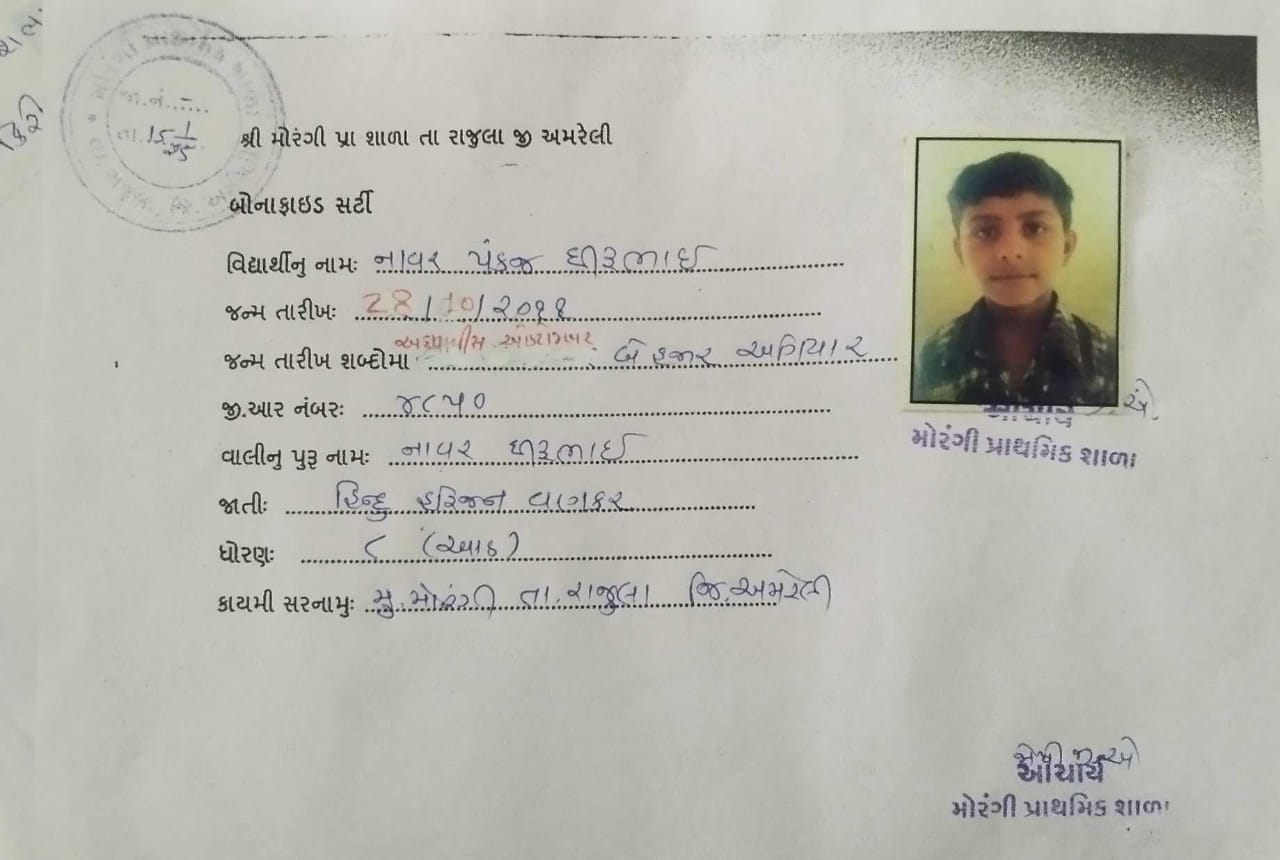 જા.નં.......
તા. 15/1/25
શ્રી મોરંગી પ્રા શાળા તા રાજુલા જી અમરેલી
બોનાફાઇડ સર્ટી
વિદ્યાર્થીનુ નામઃ નાવર પંકજ ધીરૂભાઈ
જન્મ તારીખઃ 28/10/૨૦૧૧
જન્મ તારીખ શબ્દોમા અઠ્ઠાવીસ ઓક્ટોમ્બર બે હજાર અગિયાર
જી.આર નંબરઃ ૪૮૫૦
વાલીનુ પુરૂ નામઃ નાવર ધીરૂભાઈ
જાતીઃ હિન્દુ હરિજન વણકર
ધોરણઃ ૮ (આઠ)
કાયમી સરનામુઃ મુ. મોરંગી તા. રાજુલા જિ. અમરેલી
આચાર્ય
મોરંગી પ્રાથમિક શાળા
આચાર્ય
મોરંગી પ્રાથમિક શાળા